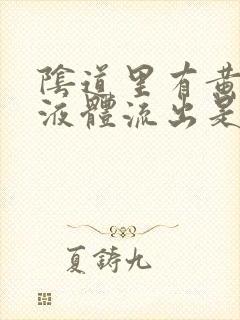 陰道里有黃
液體流出是
夏鑄九